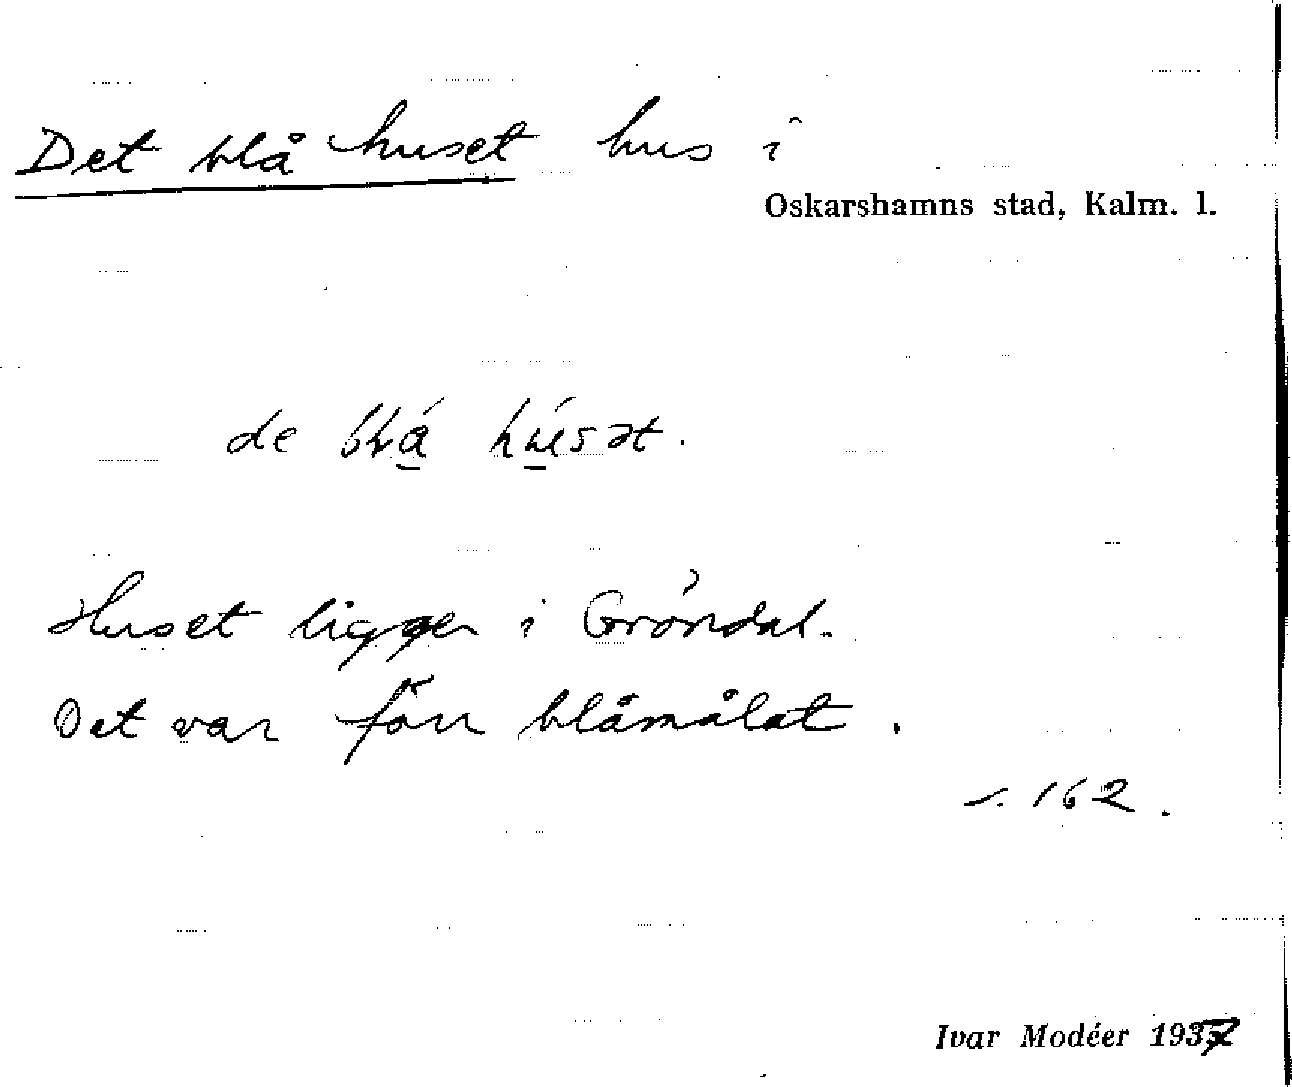 Det blå huset hus i
Oskarshamns stad, Kalm. l.
de blå húsət.
Huset ligger i Gröndal.
Det var förr blåmålat.
s. 162.
Ivar Modéer 1937